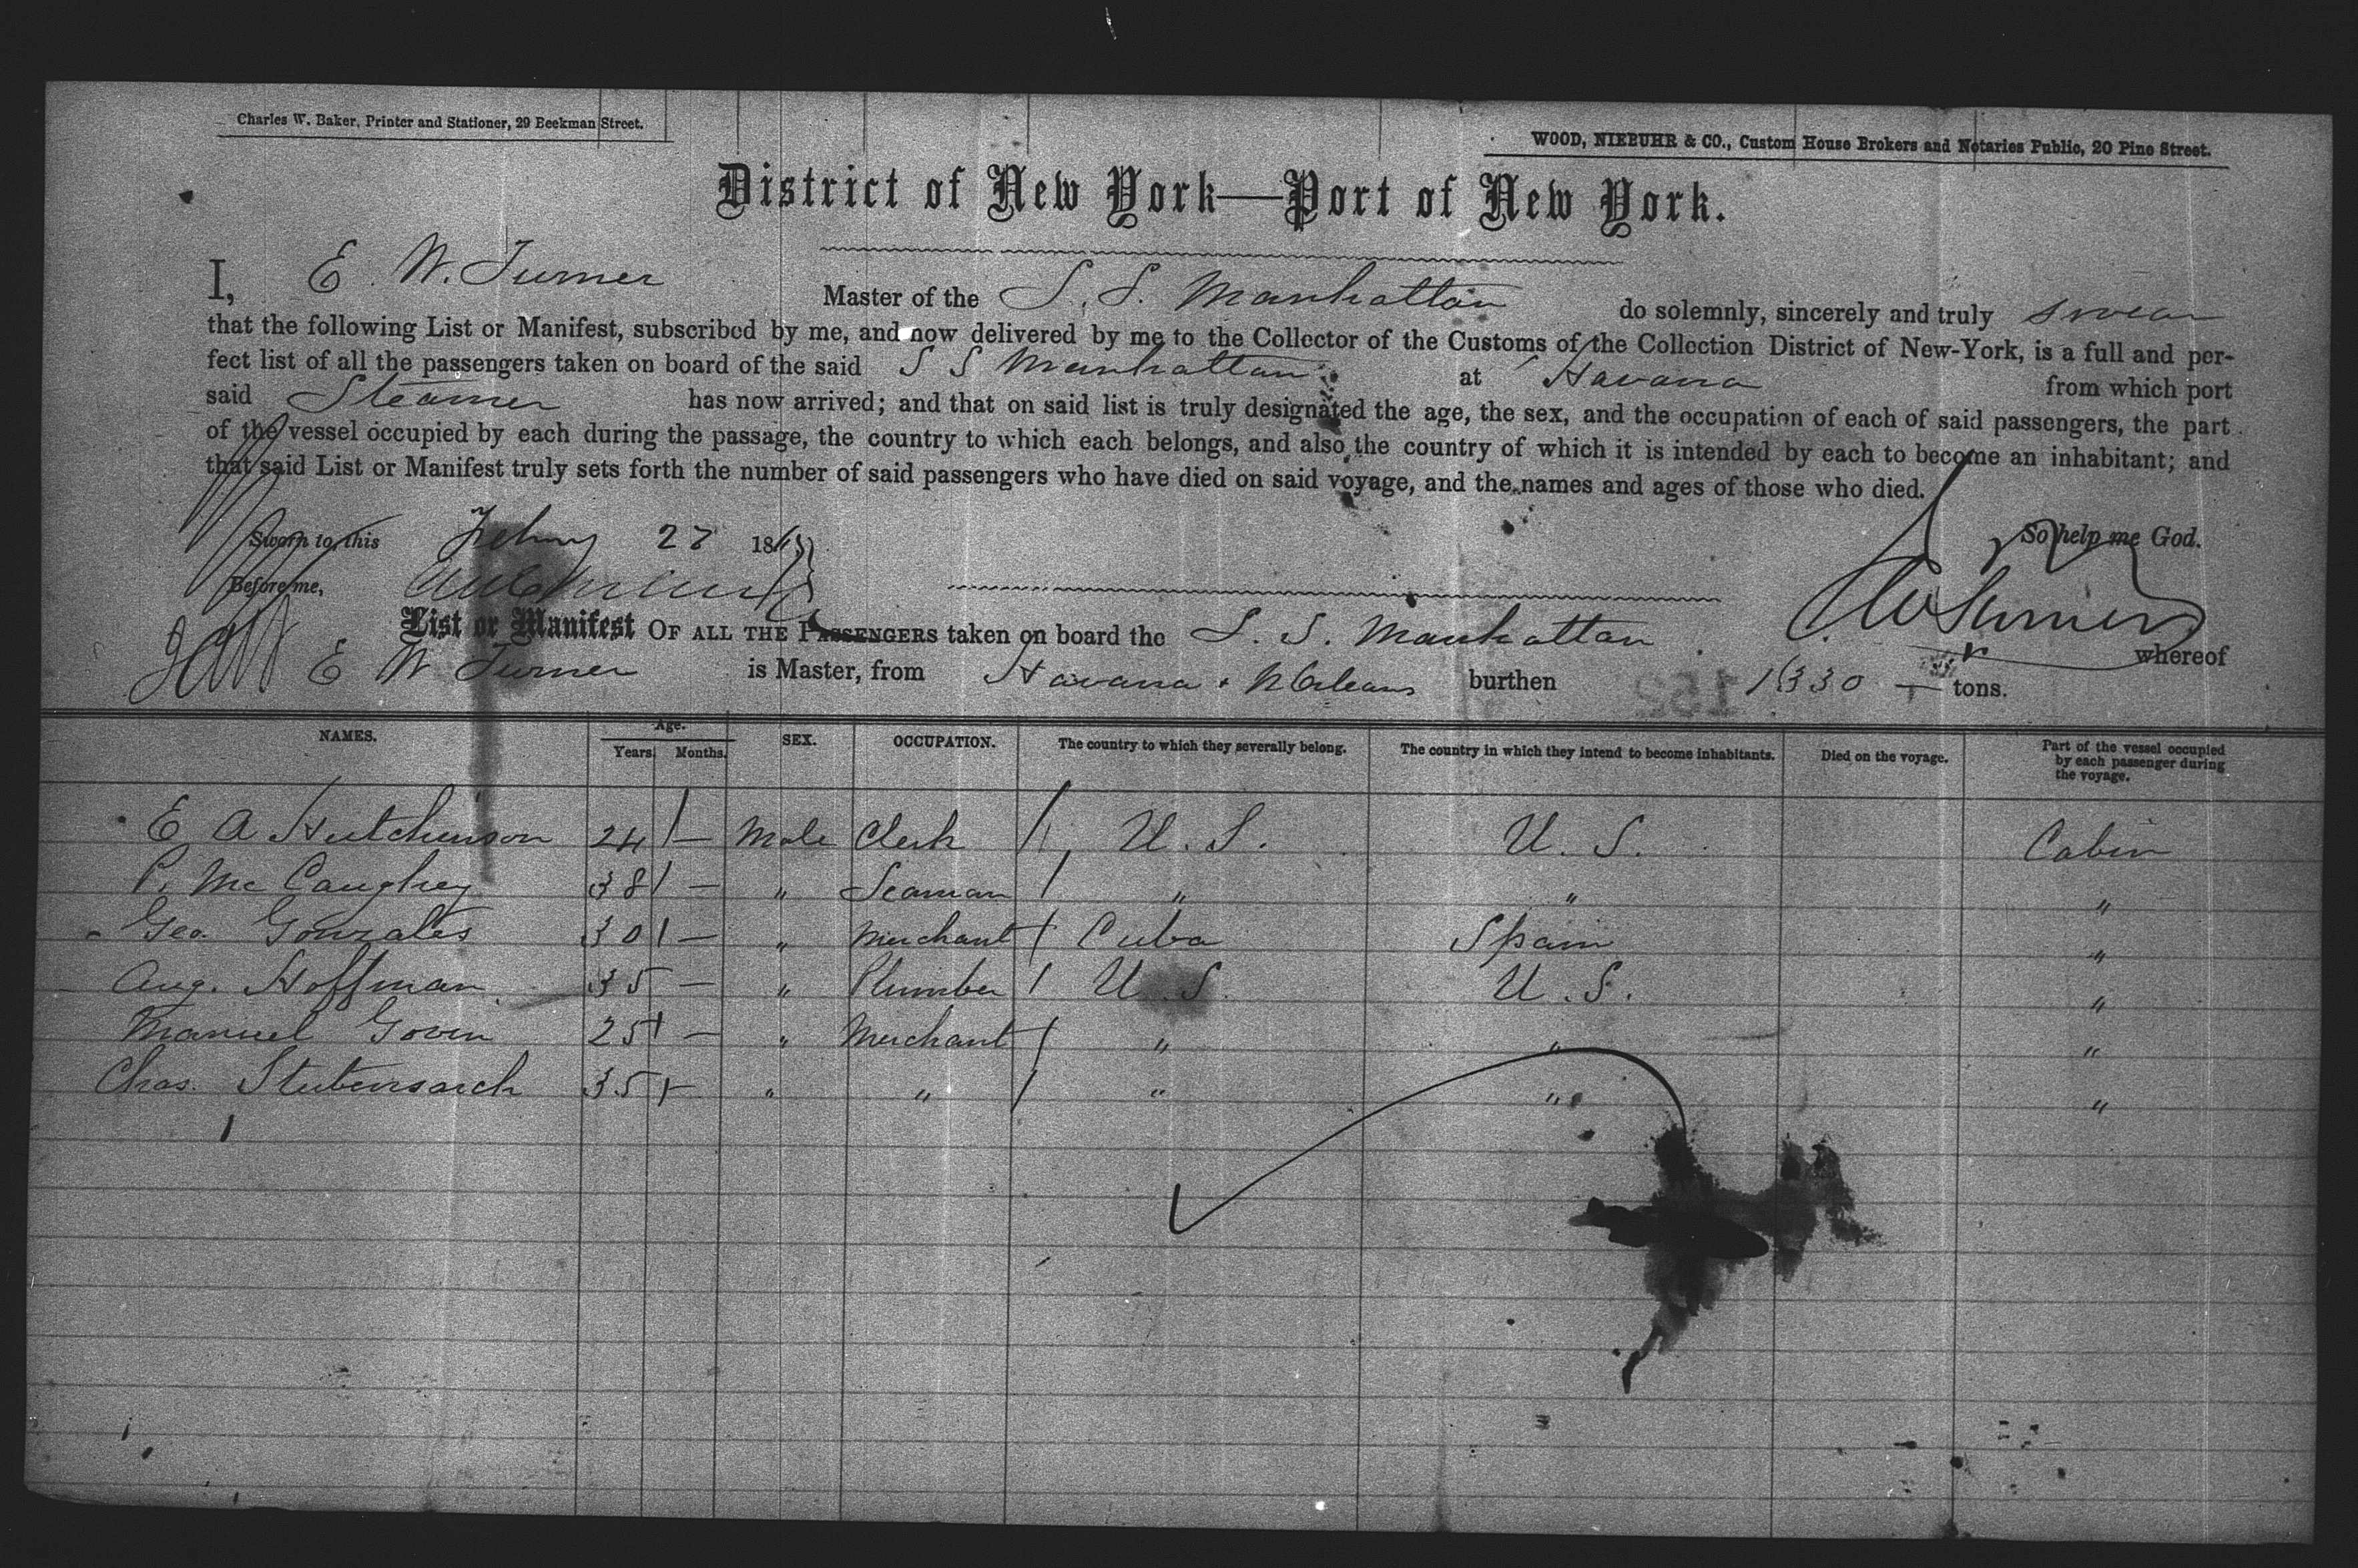 Charles W. Baker, Printer and Stationer, 29 Beekman Street.
WOOD, NIEBUHR & CO., Custom House Brokers and Notaries Public, 20 Pine Street.
District of New York—Port of New York.
I, E. W. Turner Master of the S. S. Manhattan do solemnly, sincerely and truly swear
that the following List or Manifest, subscribed by me, and now delivered by me to the Collector of the Customs of the Collection District of New-York, is a full and per-
fect list of all the passengers taken on board of the said S S Manhattan at Havana from which port
said Steamer has now arrived; and that on said list is truly designated the age, the sex, and the occupation of each of said passengers, the part
of the vessel occupied by each during the passage, the country to which each belongs, and also the country of which it is intended by each to become an inhabitant; and
that said List or Manifest truly sets forth the number of said passengers who have died on said voyage, and the names and ages of those who died.
Sworn to, this Febry 27 18
So help me God.
Before me,
E W Turner
List or Manifest OF ALL THE PASSENGERS taken on board the S. S. Manhattan whereof
E W Turner is Master, from Havana & N Orleans burthen 1330 — tons.
152
NAMES. Age. Years. Months. SEX. OCCUPATION. The country to which they severally belong. The country in which they intend to become inhabitants. Died on the voyage. Part of the vessel occupied by each passenger during the voyage.
E A Hutchinson 24 — Male Clerk U. S. U. S. Cabin
P. Mc Caughey 38 — " Seaman " " "
Geo. Gonzales 30 — " Merchant Cuba Spain "
Aug. Hoffman 35 — " Plumber U S. U. S. "
Manuel Govin 25 — " Merchant " " "
Chas. Stubensarch 35 — " " " " "